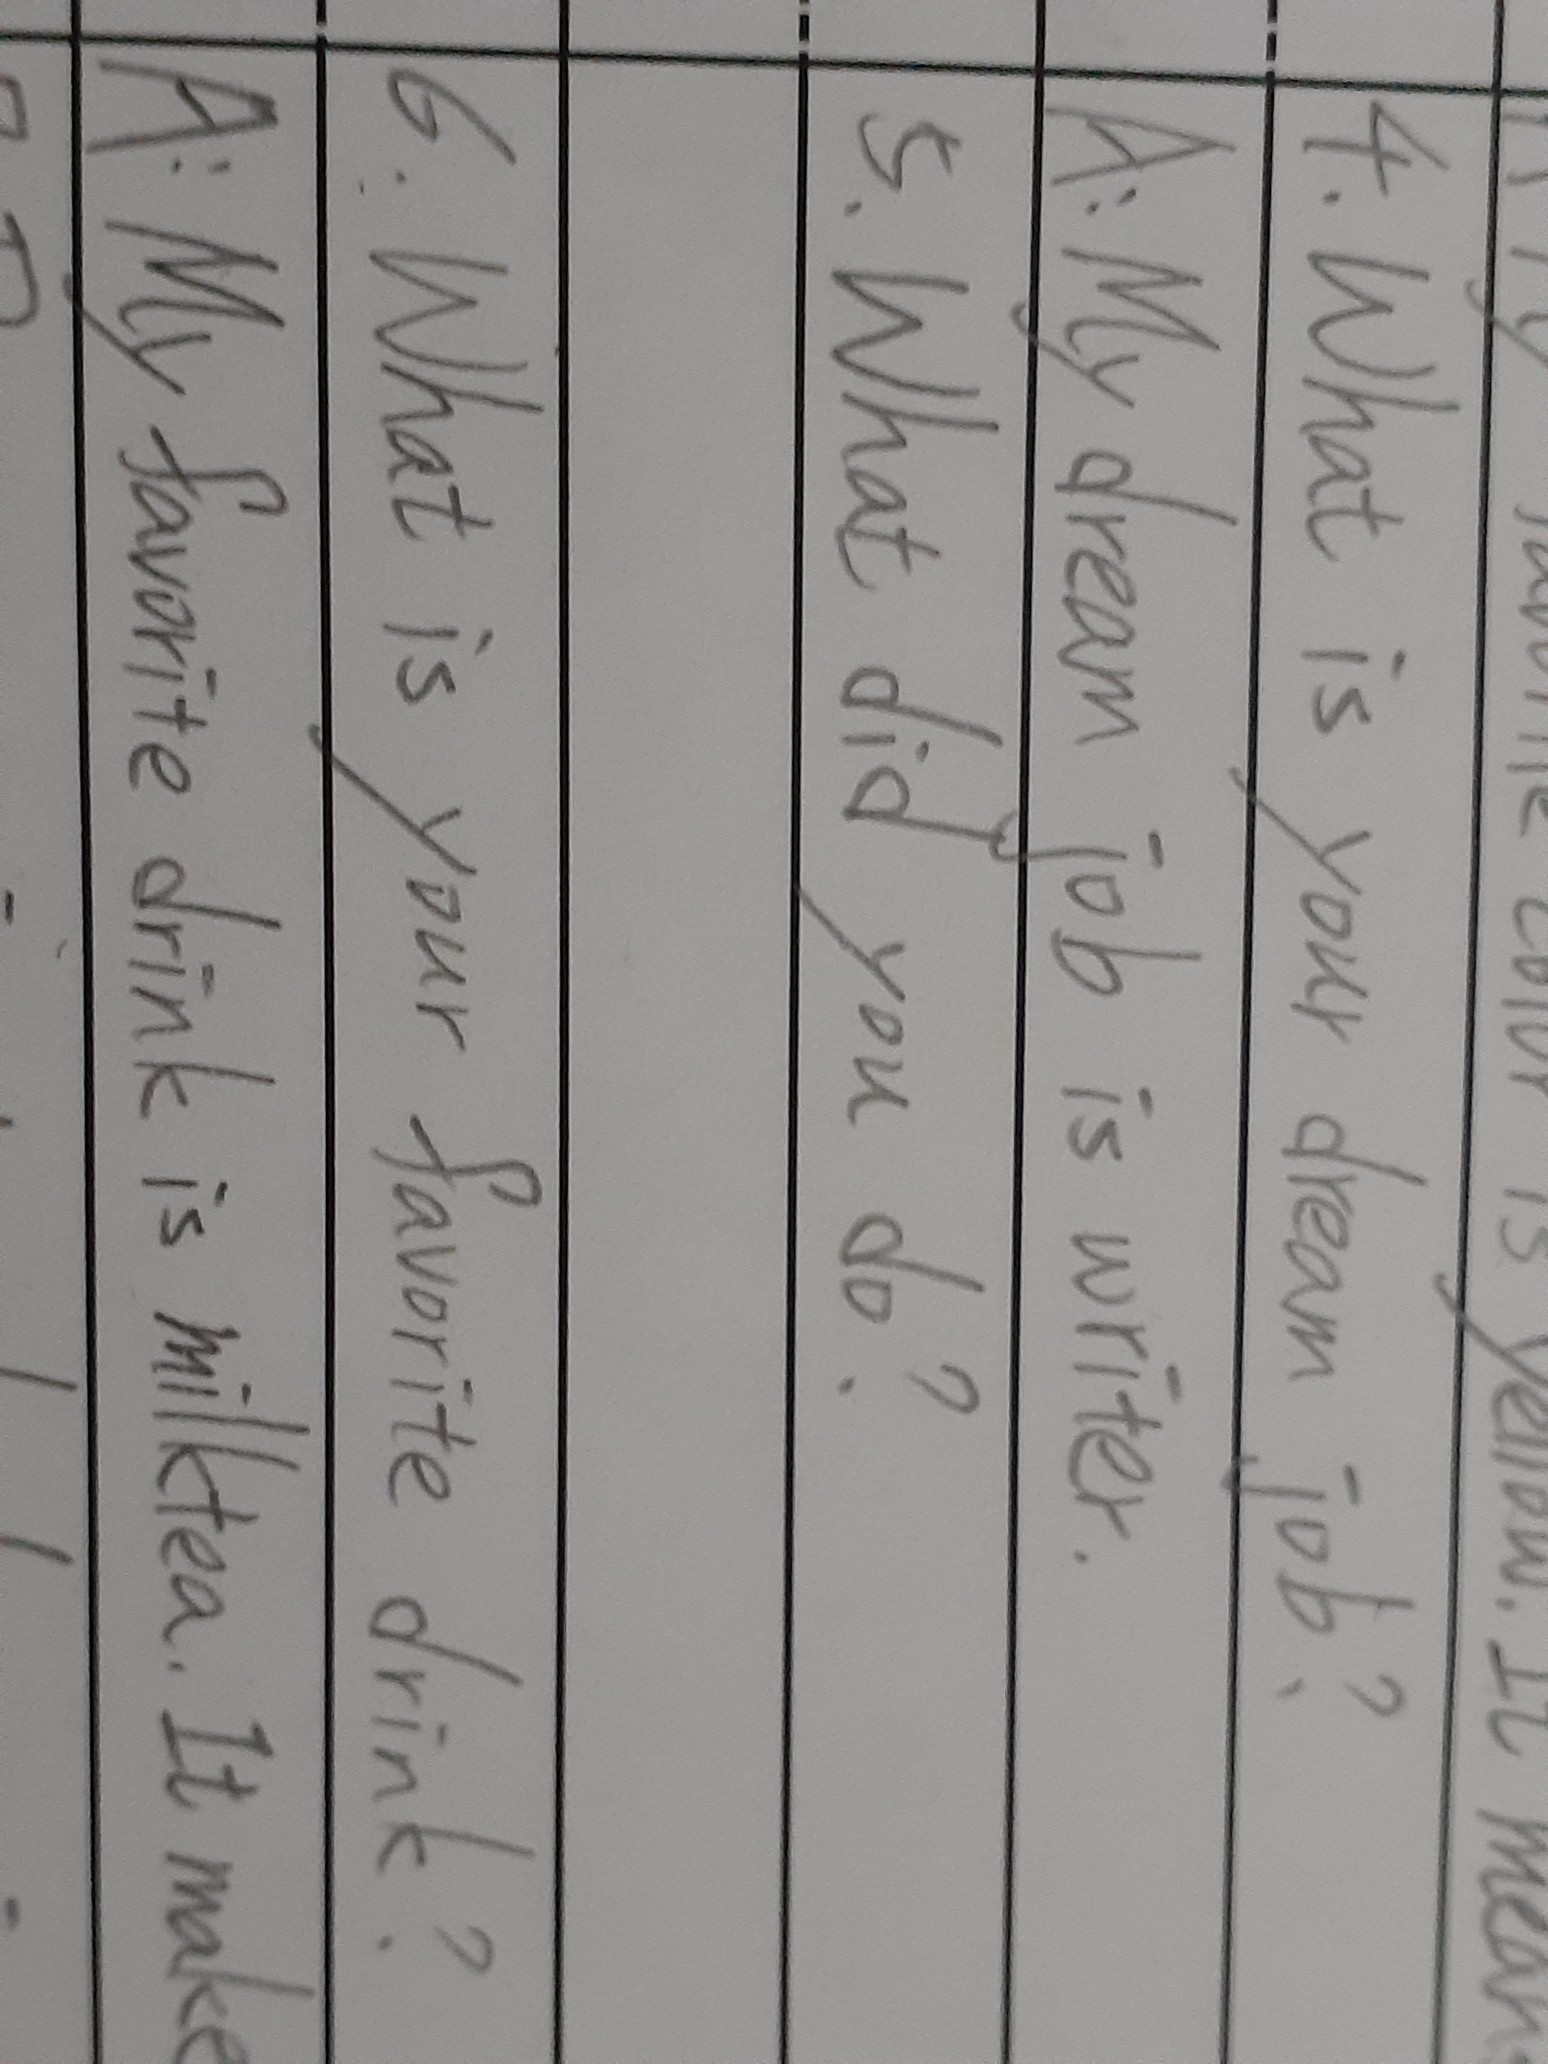 My favorite color is yellow. It mean
4. What is your dream job?
A: My dream job is writer.
5. What did you do?
6. What is your favorite drink?
A: My favorite drink is milktea. It make